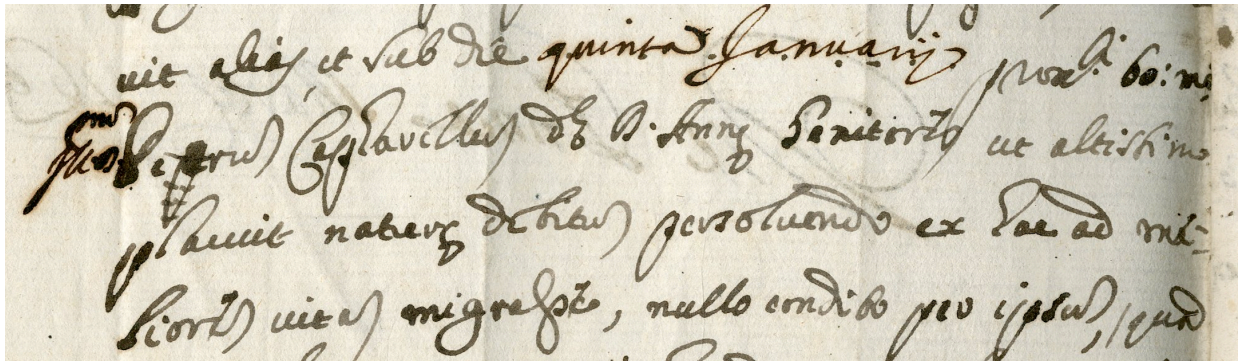 uit alias, et sub die quinta Januarij prox.i bo: m
Petrus Cestavellus d. D. Annę Genitoris ut altissimo
placuit naturę debitum persolvendo ex hac ad me-
liorem vitam migrasset, nullo condito per ipsum, quod